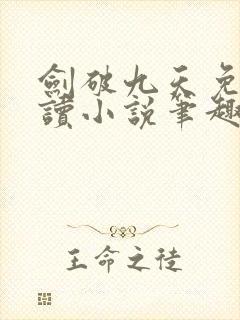 劍破九天免
讀小說筆趣
王命之徒